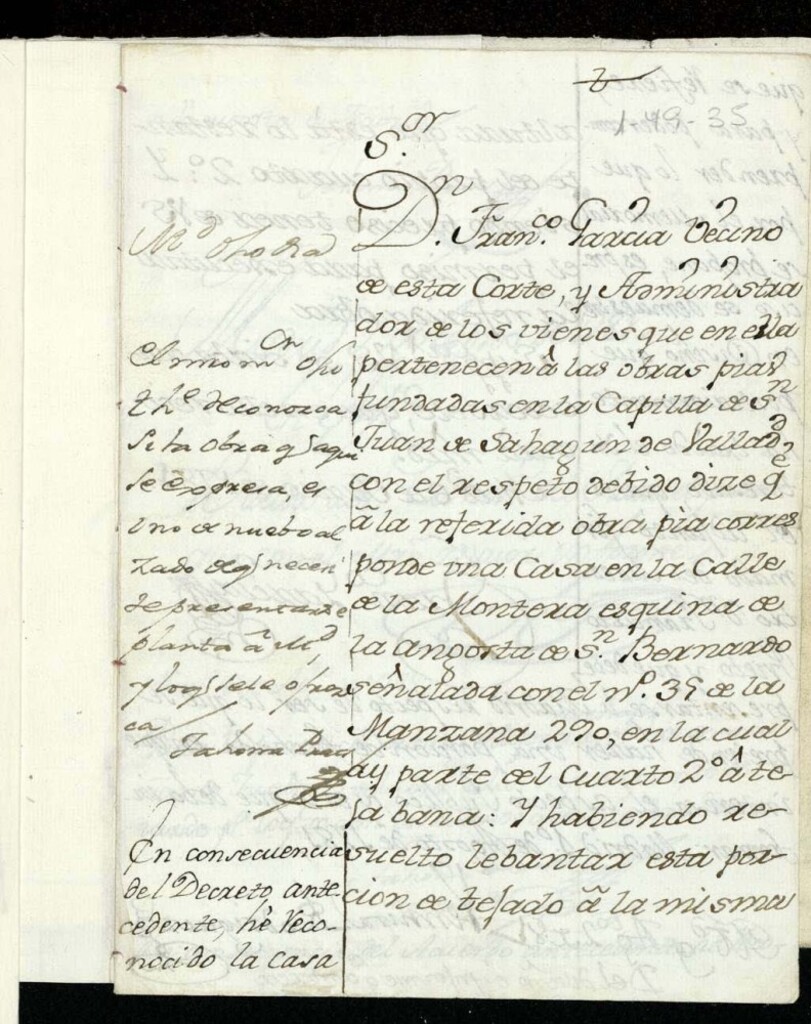 1-49-35
S.or
D.n Fran.co Garcia Vecino
de esta Corte, y Administra
dor de los vienes que en ella
pertenecen â las obras pias
fundadas en la Capilla de S.n
Juan de Sahagun de Vallad.d
con el respeto debido dize q.e
â la referida obra pia corres
ponde vna Casa en la Calle
de la Montera esquina de
la angosta de S.n Bernardo
señalada con el nº. 35 de la
Manzana 290, en la cual
ay parte del Cuarto 2º â te
ja bana: Y habiendo re-
suelto lebantar esta por-
cion de tejado â la misma
M.d
El mismo
reconozca
si la obra q.e aqui
se expresa, es
vno de nuebo al
zado
de presentarse
planta â M.d
y lo q.e se le ofrez
ca
En consecuencia
del Decreto, ante-
cedente, hé reco-
nocido la casa